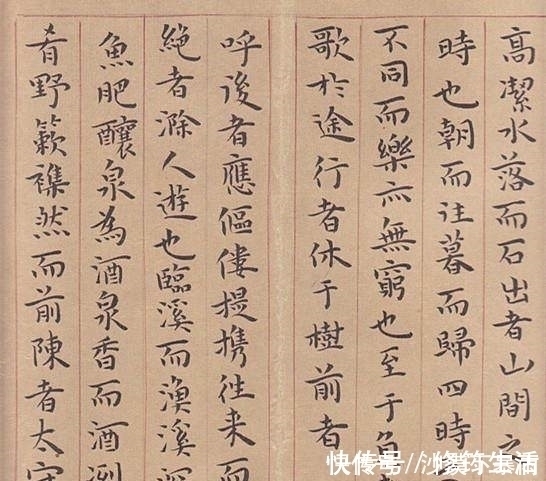 高潔水落而石出者山間之
時也朝而往暮而歸四時
不同而樂亦無窮也至于負
歌於途行者休于樹前者
呼後者應傴僂提携往来而
絶者滁人遊也臨溪而漁溪深
魚肥釀泉為酒泉香而酒洌
肴野蔌襍然而前陳者太守
快传号//